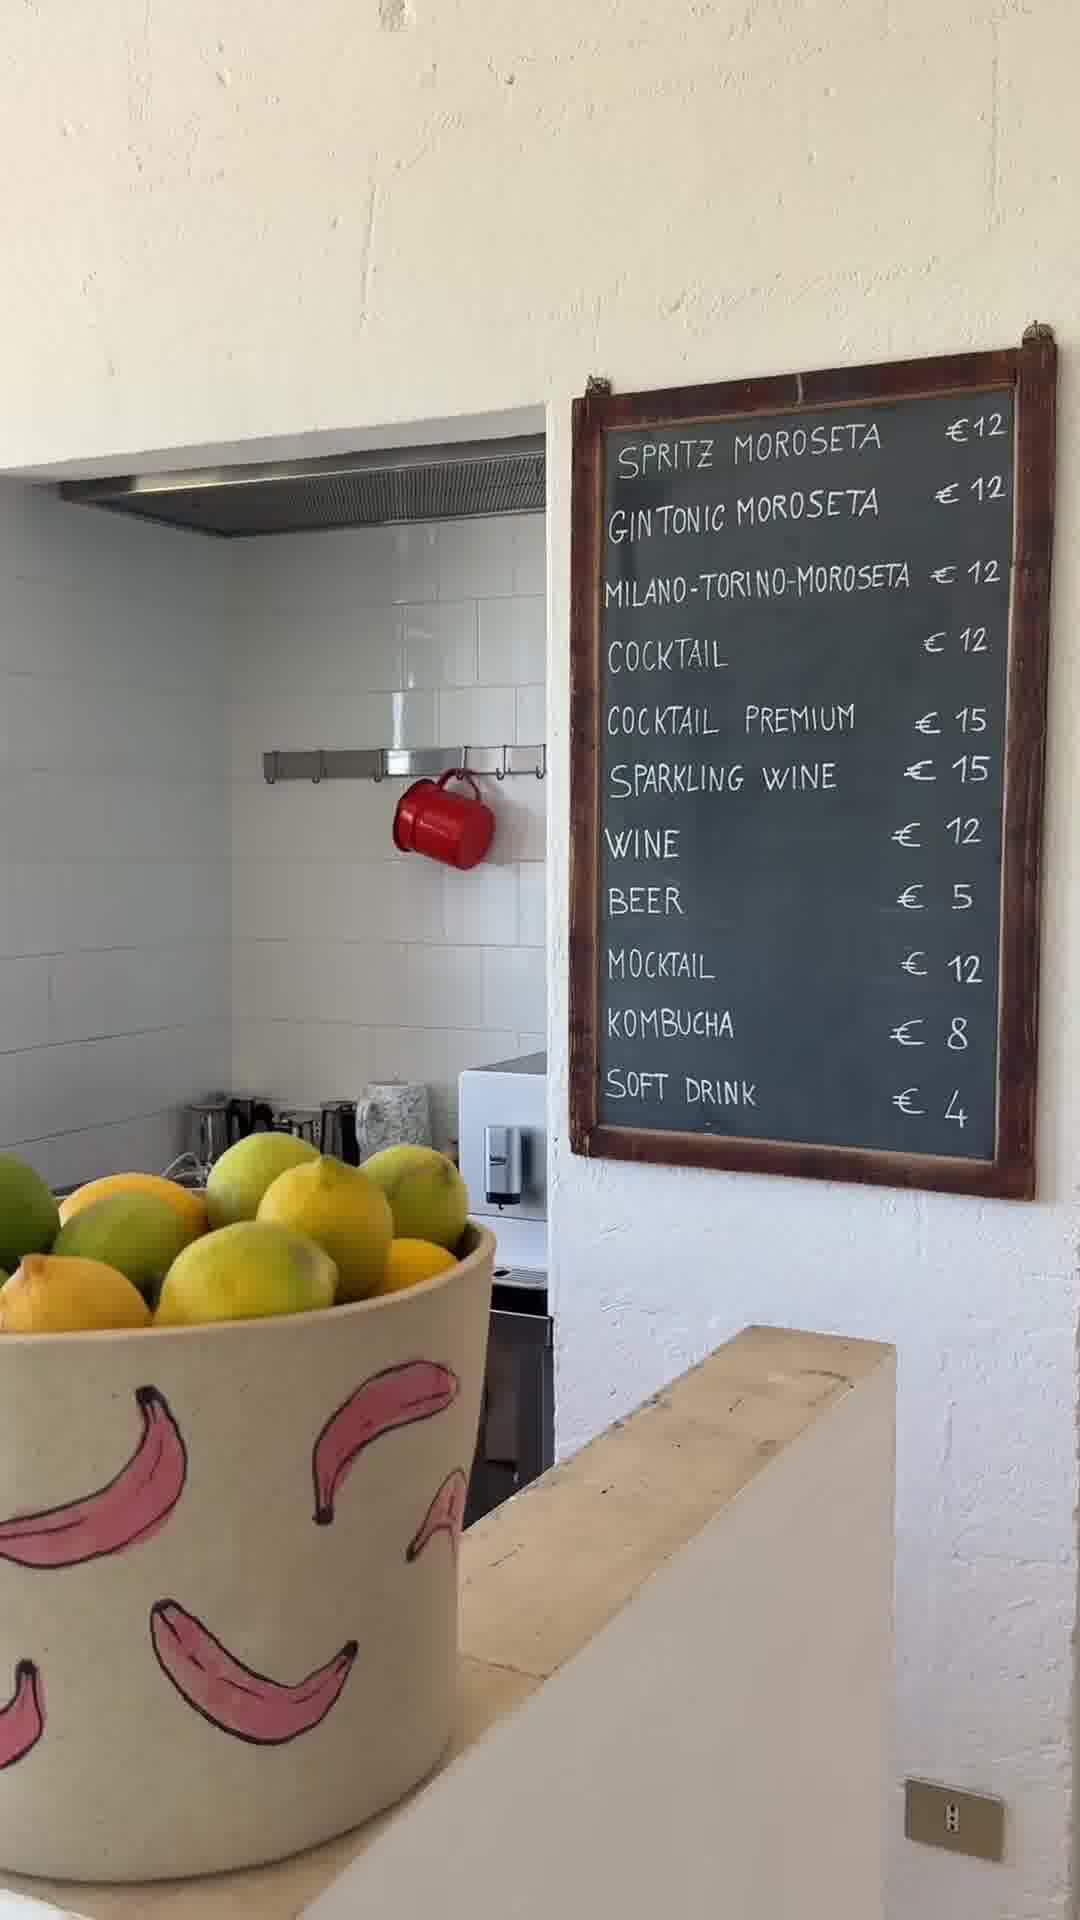 SPRITZ MOROSETA €12
GINTONIC MOROSETA €12
MILANO-TORINO-MOROSETA €12
COCKTAIL €12
COCKTAIL PREMIUM €15
SPARKLING WINE €15
WINE €12
BEER €5
MOCKTAIL €12
KOMBUCHA €8
SOFT DRINK €4